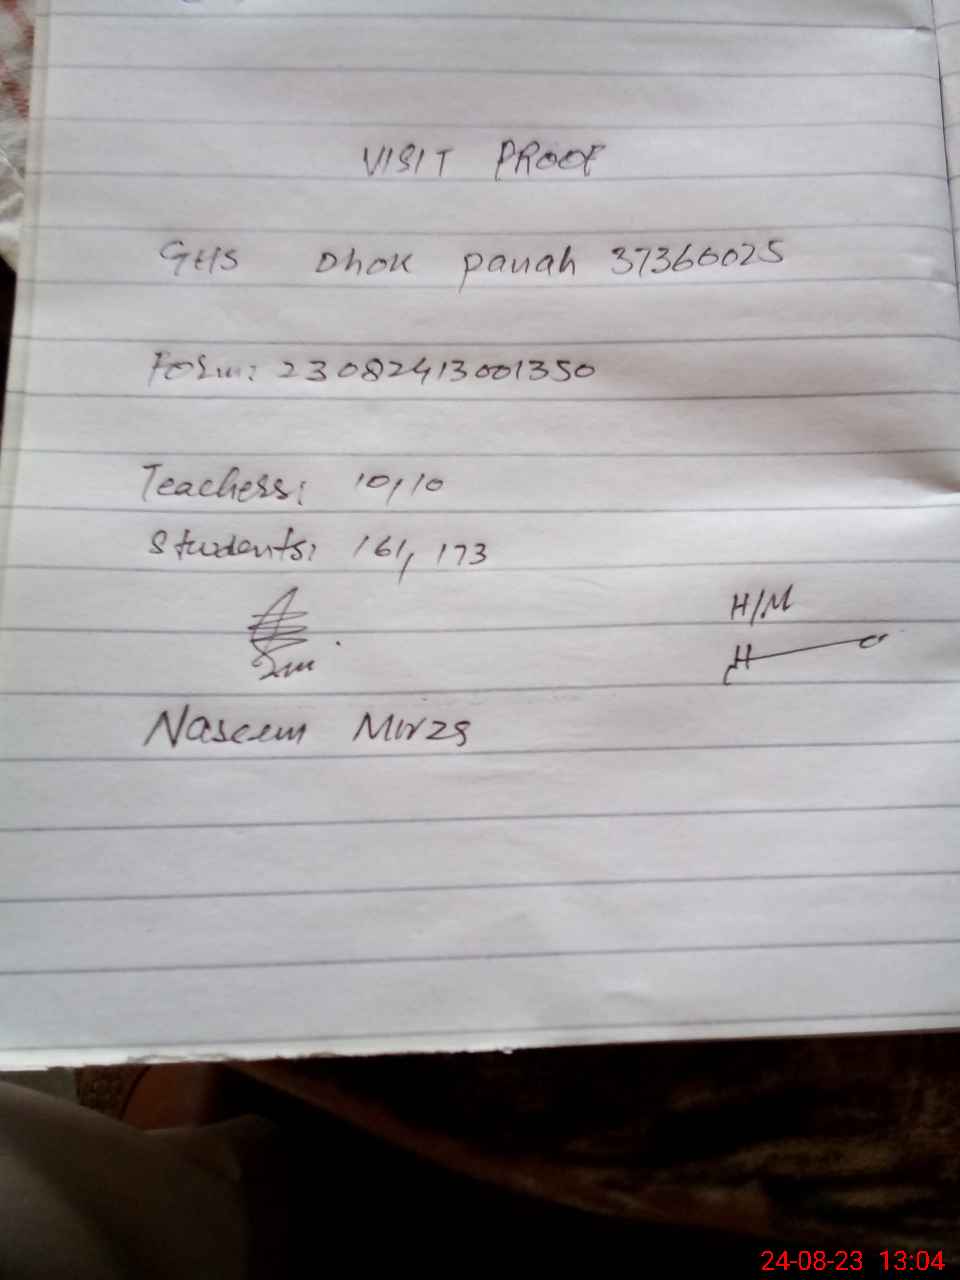 VISIT PROOF
GHS Dhok Panah 37360025
Form: 23082413001350
Teachers: 10,10
Students: 161, 173
H/M
Naseem Mirza
24-08-23 13:04